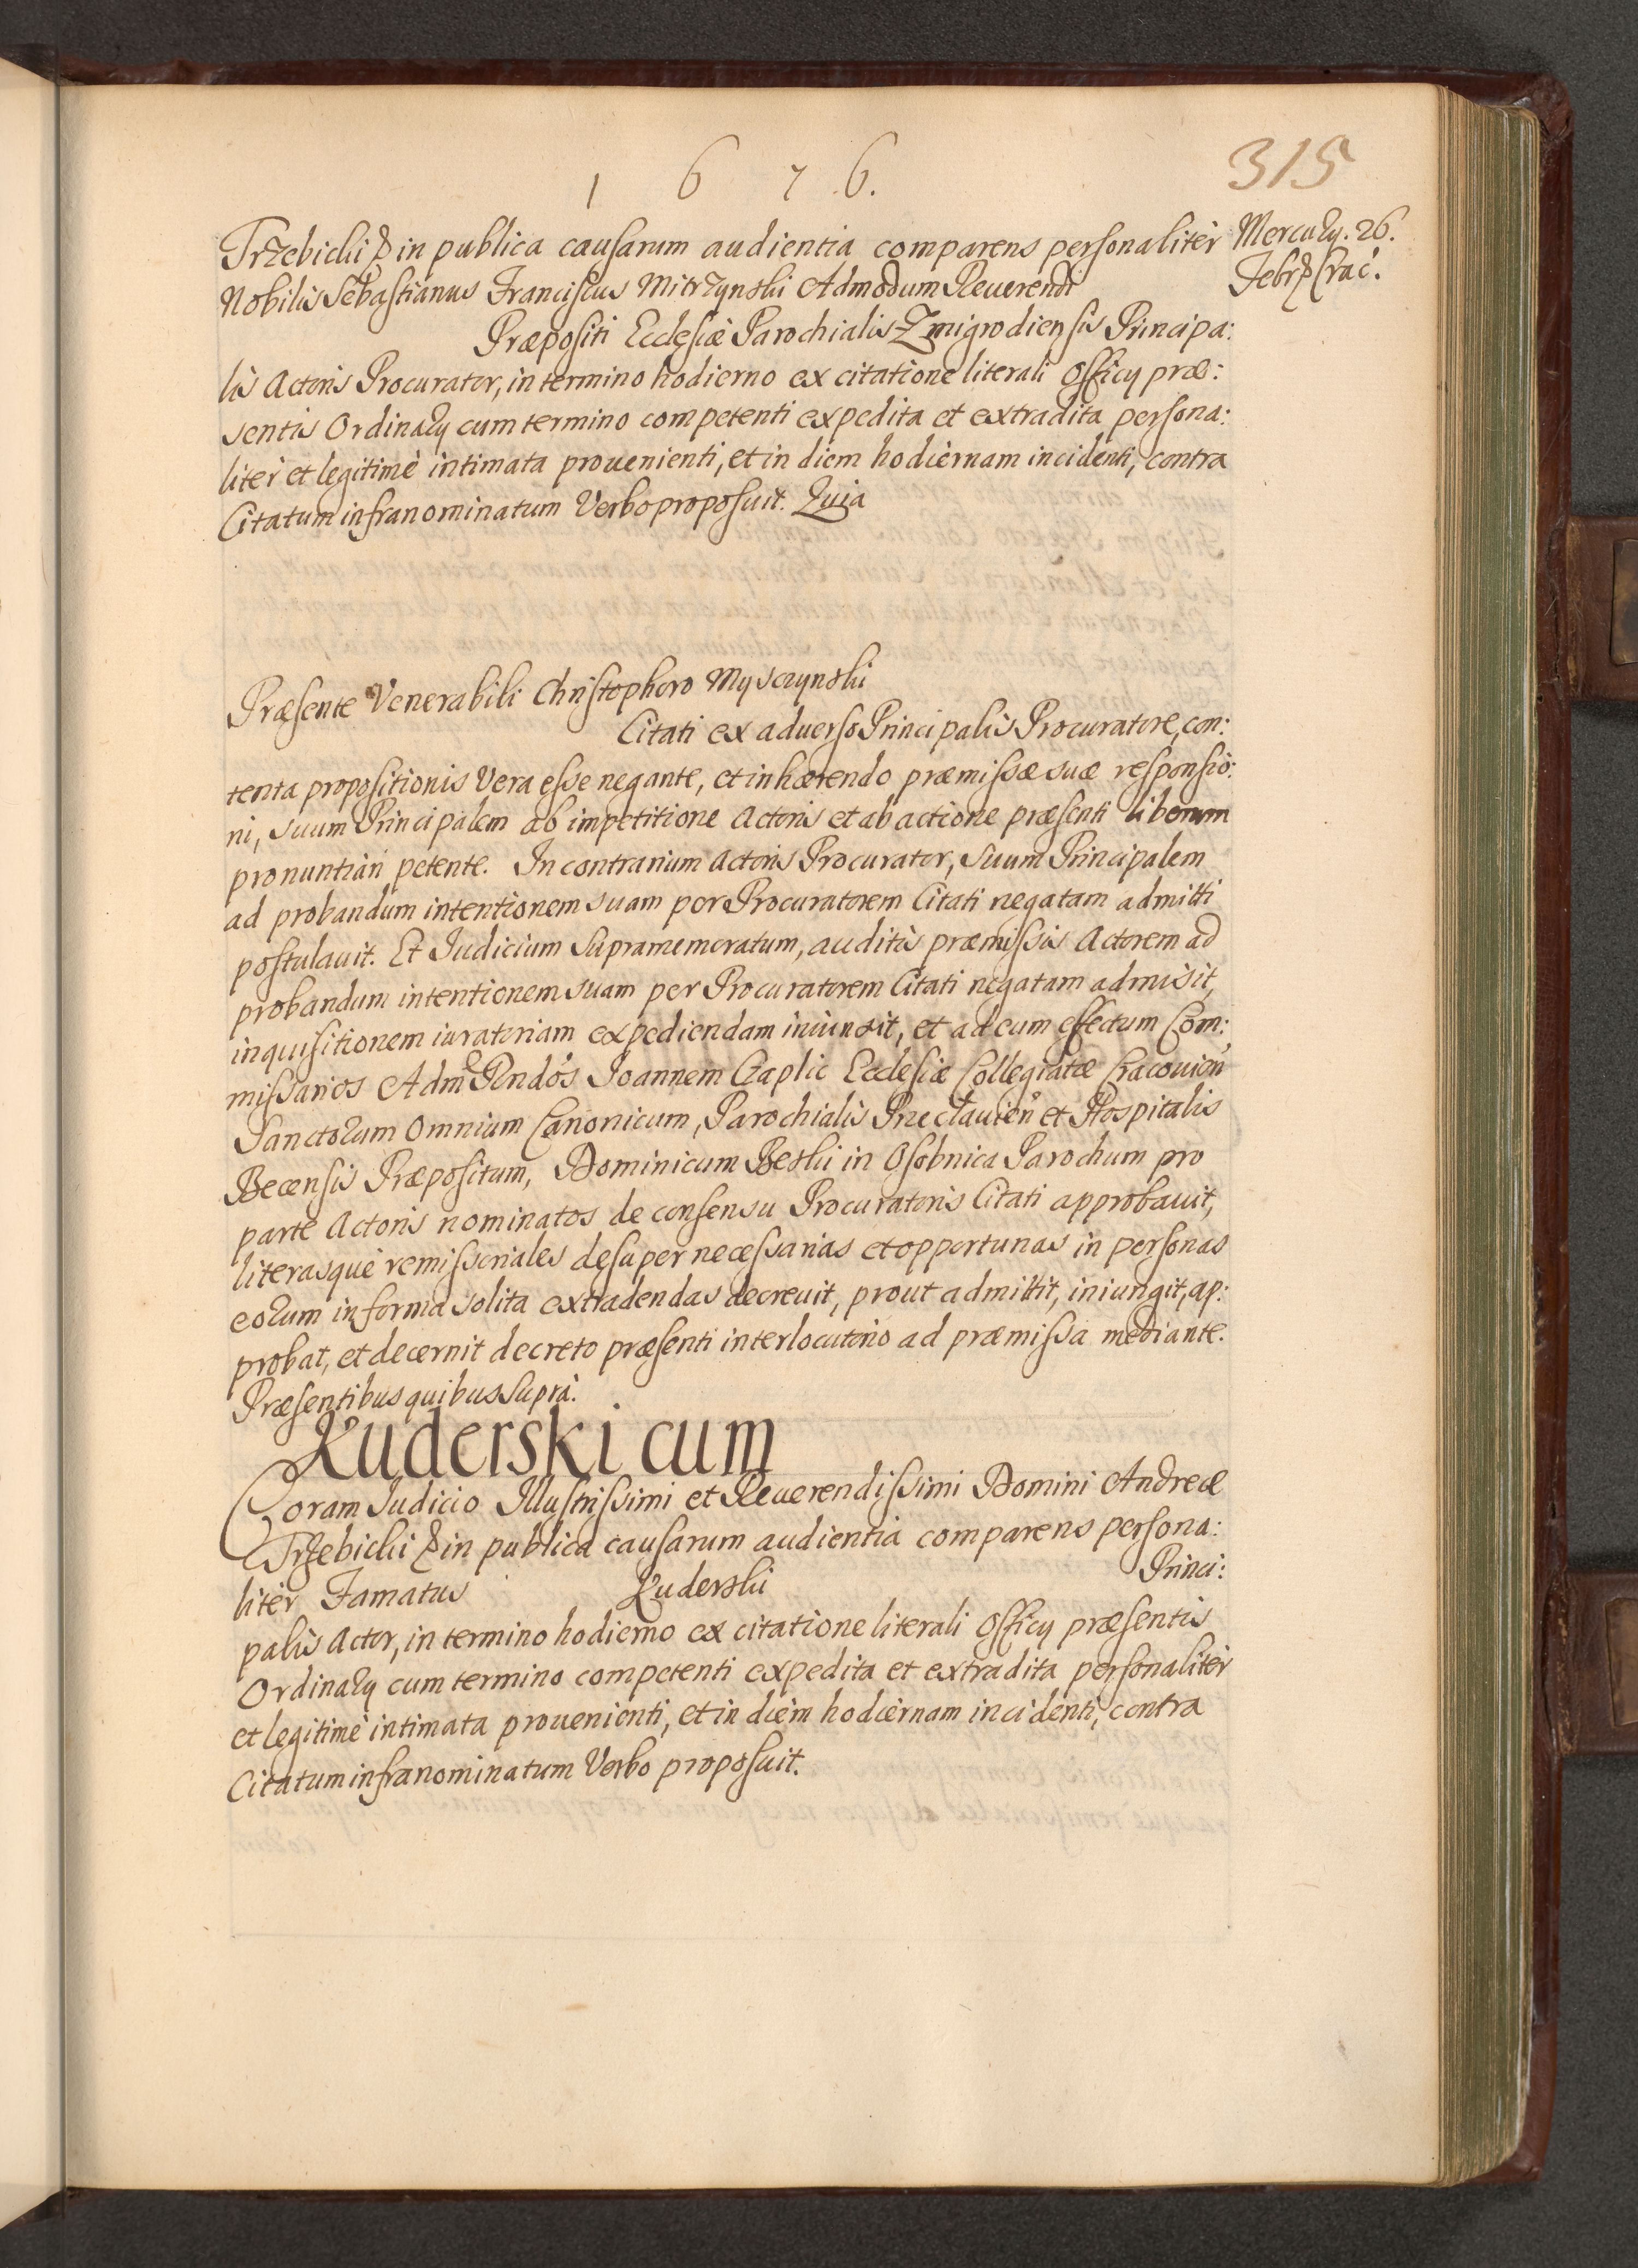 1 6 7 6.
315
Mercurij. 26.
Febr: Crac:
Trzebicki & in publica causarum audientia comparens personaliter
Nobilis Sebastianus Franciscus Mitrzynski Admodum Reuerendi
Præpositi Ecclesiæ Parochialis Zmigrodiensis Principa:
lis Actoris Procurator, in termino hodierno ex citatione literali Officij præ:
sentis Ordinarij cum termino competenti expedita et extradita persona:
liter et legitimè intimata prouenienti, et in diem hodiernam incidenti, contra
Citatum infranominatum Verbo proposuit. Quia
Præsente Venerabili Christophoro Mysczynski
Citati ex aduerso Principalis Procuratore, con:
tenta propositionis Vera esse negante, et inhærendo præmissæ suæ responsio:
ni, suum Principalem ab impetitione Actoris et ab actione præsenti liberum
pronuntiari petente. In contrarium Actoris Procurator, suum Principalem
ad probandum intentionem suam per Procuratorem Citati negatam admitti
postulauit. Et Judicium Supramemoratum, auditis præmissis Actorem ad
probandum intentionem suam per Procuratorem Citati negatam admisit,
inquisitionem iuratoriam expediendam iniunxit, et ad eum effectum Com:
missarios Adm Rndós Joannem Czaplic Ecclesiæ Collegiatæ Cracouien
Sanctorum Omnium Canonicum, Parochialis Przeclauien et Hospitalis
Becensis Præpositum, Dominicum Beski in Osobnica Parochum pro
parte Actoris nominatos de consensu Procuratoris Citati approbauit,
literasque remissoriales desuper necessarias et opportunas in personas
eorum in forma solita extradendas decreuit, prout admittit, iniungit, ap:
probat, et decernit decreto præsenti interlocutorio ad præmissa mediante.
Præsentibus quibus Suprà.
Kuderski cum
Coram Judicio Illustrissimi et Reuerendissimi Domini Andreæ
Trzebicki & in publica causarum audientia comparens persona:
liter Famatus Kuderski Princi:
palis Actor, in termino hodierno ex citatione literali Officij præsentis
Ordinarij cum termino competenti expedita et extradita personaliter
et legitimè intimata prouenienti, et in diem hodiernam incidenti, contra
Citatum infranominatum Verbo proposuit.